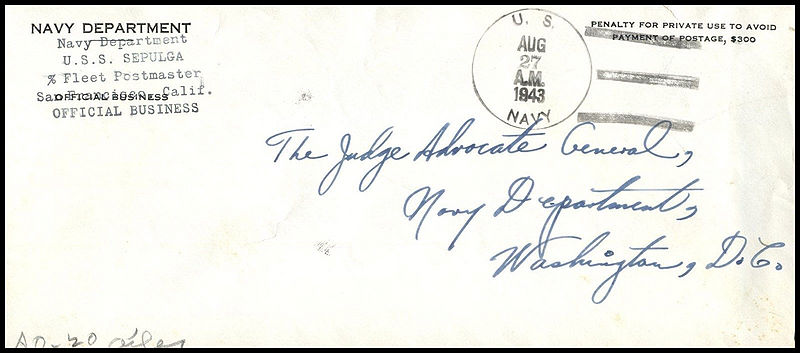 NAVY DEPARTMENT
Navy Department
U.S.S. SEPULGA
% Fleet Postmaster
San Francisco, Calif.
OFFICIAL BUSINESS
OFFICIAL BUSINESS
U. S.
AUG
27
A.M.
1943
NAVY
PENALTY FOR PRIVATE USE TO AVOID
PAYMENT OF POSTAGE, $300
The Judge Advocate General,
Navy Department,
Washington, D.C.
AO-20